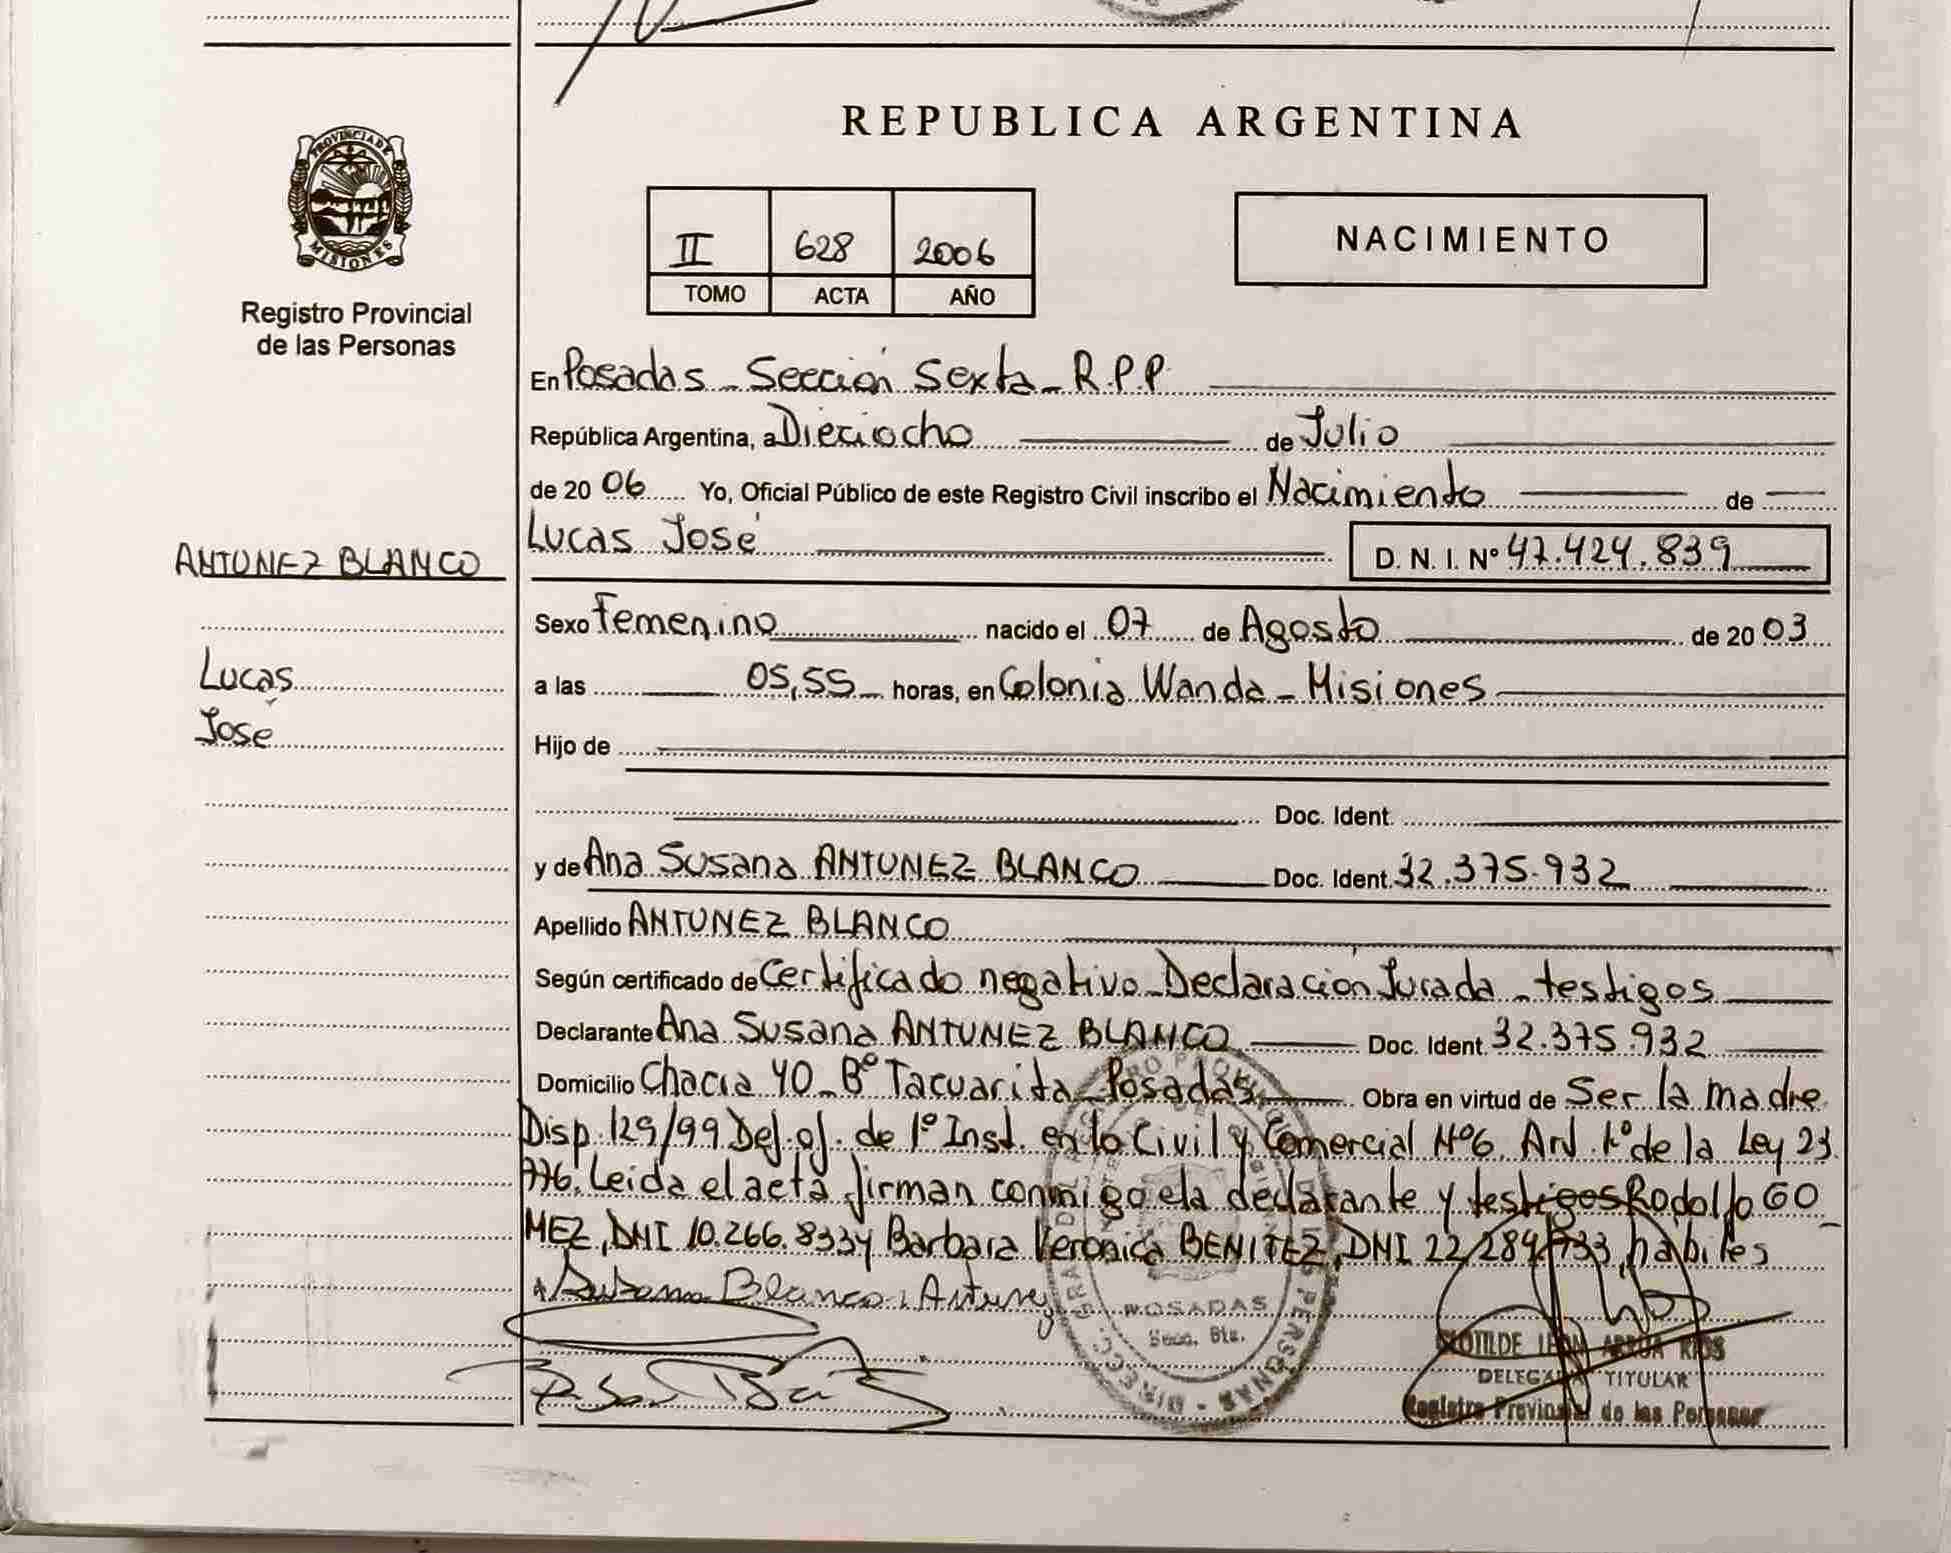 REPUBLICA ARGENTINA
PROVINCIA DE
MISIONES
Registro Provincial
de las Personas
II 628 2006
TOMO ACTA AÑO
NACIMIENTO
En Posadas - Sección Sexta - R.P.P.
República Argentina, a Dieciocho de Julio
de 20 06 Yo, Oficial Público de este Registro Civil inscribo el Nacimiento de
Lucas José D. N. I. Nº 47.424.839
ANTUNEZ BLANCO
Lucas
José
Sexo Femenino nacido el 07 de Agosto de 20 03
a las 05,55 horas, en Colonia Wanda - Misiones
Hijo de
Doc. Ident.
y de Ana Susana ANTUNEZ BLANCO Doc. Ident. 32.375.932
Apellido ANTUNEZ BLANCO
Según certificado de Certificado negativo - Declaración Jurada - testigos
Declarante Ana Susana ANTUNEZ BLANCO Doc. Ident. 32.375.932
Domicilio Chacra 40 - Bº Tacuarita - Posadas Obra en virtud de Ser la madre
Disp. 129/99 Def. of. de 1º Inst. en lo Civil y Comercial Nº6. Art. 1º de la Ley 23
776. Leida el acta firman conmigo la declarante y testigos Rodolfo GO
MEZ, DNI 10.266.833 y Barbara Veronica BENITEZ, DNI 22.284.733, habiles
Susana Blanco Antunez
POSADAS
Secc. 6ta.
CLOTILDE LEON ARRUA RIOS
DELEGADA TITULAR
Registro Provincial de las Personas